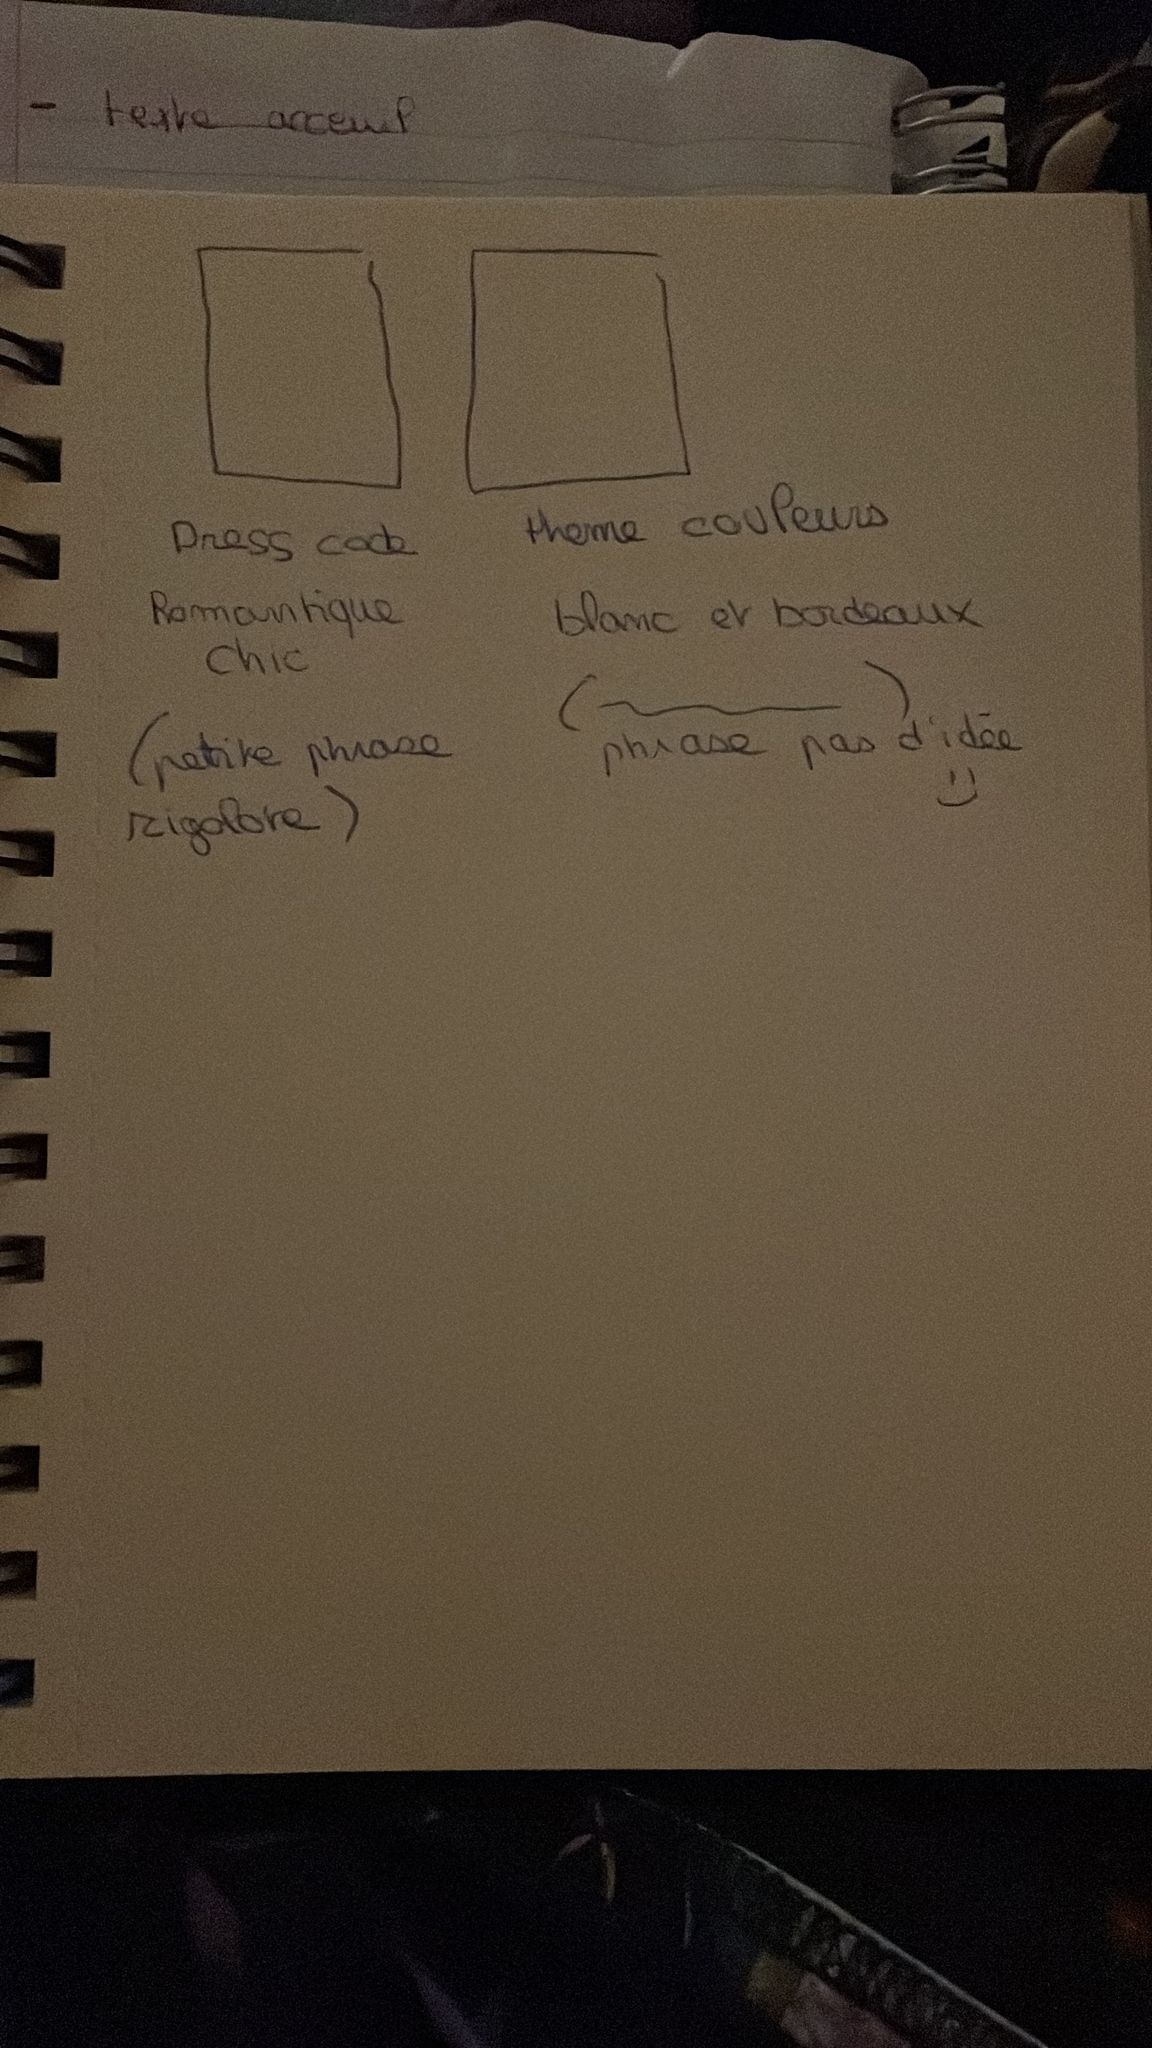 - texte acceuil
Dress code
Romantique
chic
(petite phrase
rigolote)
theme couleurs
blanc et bordeaux
( )
phrase pas d'idée